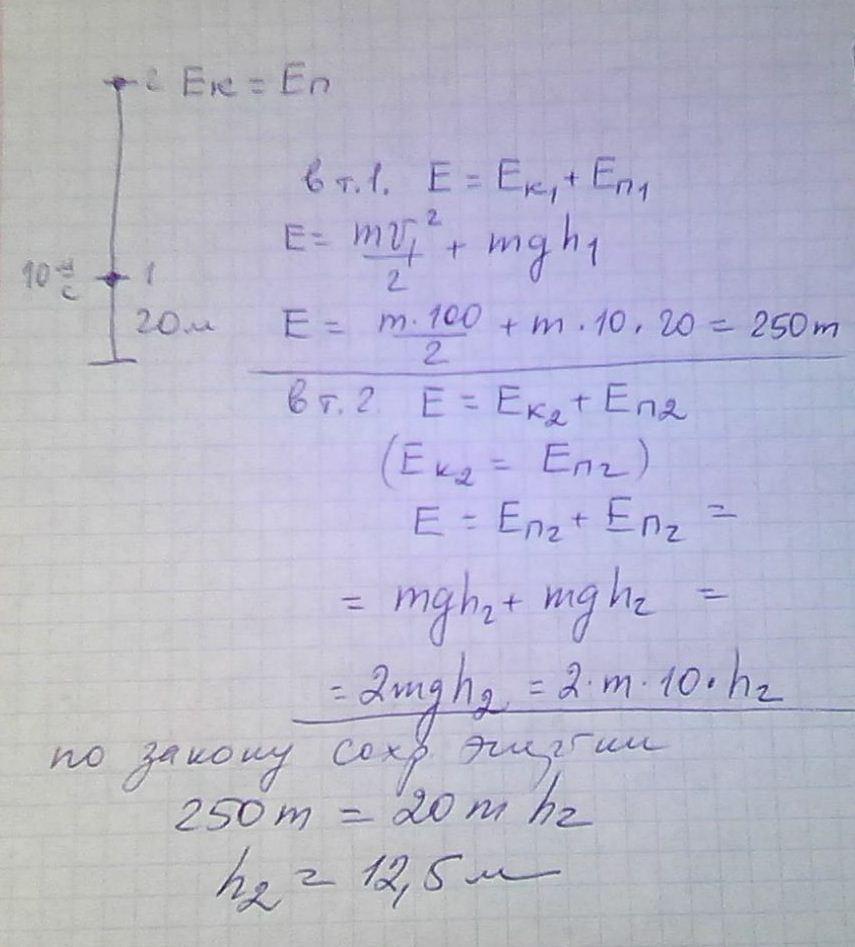 2 Eк = Eп
в т.1. E = Eк₁ + Eп₁
E = mv₁²/2 + mgh₁
10 м/с 1
20м
E = m·100/2 + m·10·20 = 250m
в т.2 E = Eк₂ + Eп₂
(Eк₂ = Eп₂)
E = Eп₂ + Eп₂ =
= mgh₂ + mgh₂ =
= 2mgh₂ = 2·m·10·h₂
по закону сохр. энергии
250m = 20m h₂
h₂ = 12,5 м